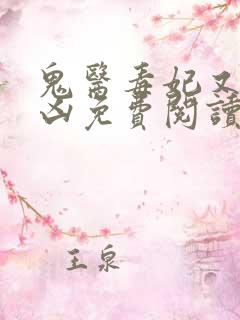 鬼醫毒妃又
凶免費閱讀
王泉